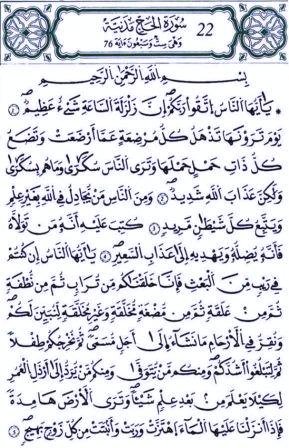 22 سُورَةُ الْحَجِّ مَدَنِيَّةٌ
وَهْيَ سِتٌّ وَسَبْعُونَ ءَايَةً 76
بِسْمِ اللَّهِ الرَّحْمَٰنِ الرَّحِيمِ
يَٰٓأَيُّهَا النَّاسُ اتَّقُوا رَبَّكُمُ إِنَّ زَلْزَلَةَ السَّاعَةِ شَيْءٌ عَظِيمٌ
يَوْمَ تَرَوْنَهَا تَذْهَلُ كُلُّ مُرْضِعَةٍ عَمَّا أَرْضَعَتْ وَتَضَعُ
كُلُّ ذَاتِ حَمْلٍ حَمْلَهَا وَتَرَى النَّاسَ سُكَٰرَىٰ وَمَا هُم بِسُكَٰرَىٰ
وَلَٰكِنَّ عَذَابَ اللَّهِ شَدِيدٌ وَمِنَ النَّاسِ مَنْ يُجَادِلُ فِي اللَّهِ بِغَيْرِ عِلْمٍ
وَيَتَّبِعُ كُلَّ شَيْطَٰنٍ مَّرِيدٍ كُتِبَ عَلَيْهِ أَنَّهُ مَن تَوَلَّاهُ
فَأَنَّهُ يُضِلُّهُ وَيَهْدِيهِ إِلَىٰ عَذَابِ السَّعِيرِ يَٰٓأَيُّهَا النَّاسُ إِن كُنتُمْ
فِي رَيْبٍ مِّنَ الْبَعْثِ فَإِنَّا خَلَقْنَٰكُم مِّن تُرَابٍ ثُمَّ مِن نُّطْفَةٍ
ثُمَّ مِنْ عَلَقَةٍ ثُمَّ مِن مُّضْغَةٍ مُّخَلَّقَةٍ وَغَيْرِ مُخَلَّقَةٍ لِّنُبَيِّنَ لَكُمْ
وَنُقِرُّ فِي الْأَرْحَامِ مَا نَشَآءُ إِلَىٰ أَجَلٍ مُّسَمًّى ثُمَّ نُخْرِجُكُمْ طِفْلًا
ثُمَّ لِتَبْلُغُوا أَشُدَّكُمْ وَمِنكُم مَّنْ يُتَوَفَّىٰ وَمِنكُم مَّنْ يُرَدُّ إِلَىٰ أَرْذَلِ الْعُمُرِ
لِكَيْلَا يَعْلَمَ مِنْ بَعْدِ عِلْمٍ شَيْـًٔا وَتَرَى الْأَرْضَ هَامِدَةً
فَإِذَا أَنزَلْنَا عَلَيْهَا الْمَآءَ اهْتَزَّتْ وَرَبَتْ وَأَنْبَتَتْ مِن كُلِّ زَوْجٍ بَهِيجٍ